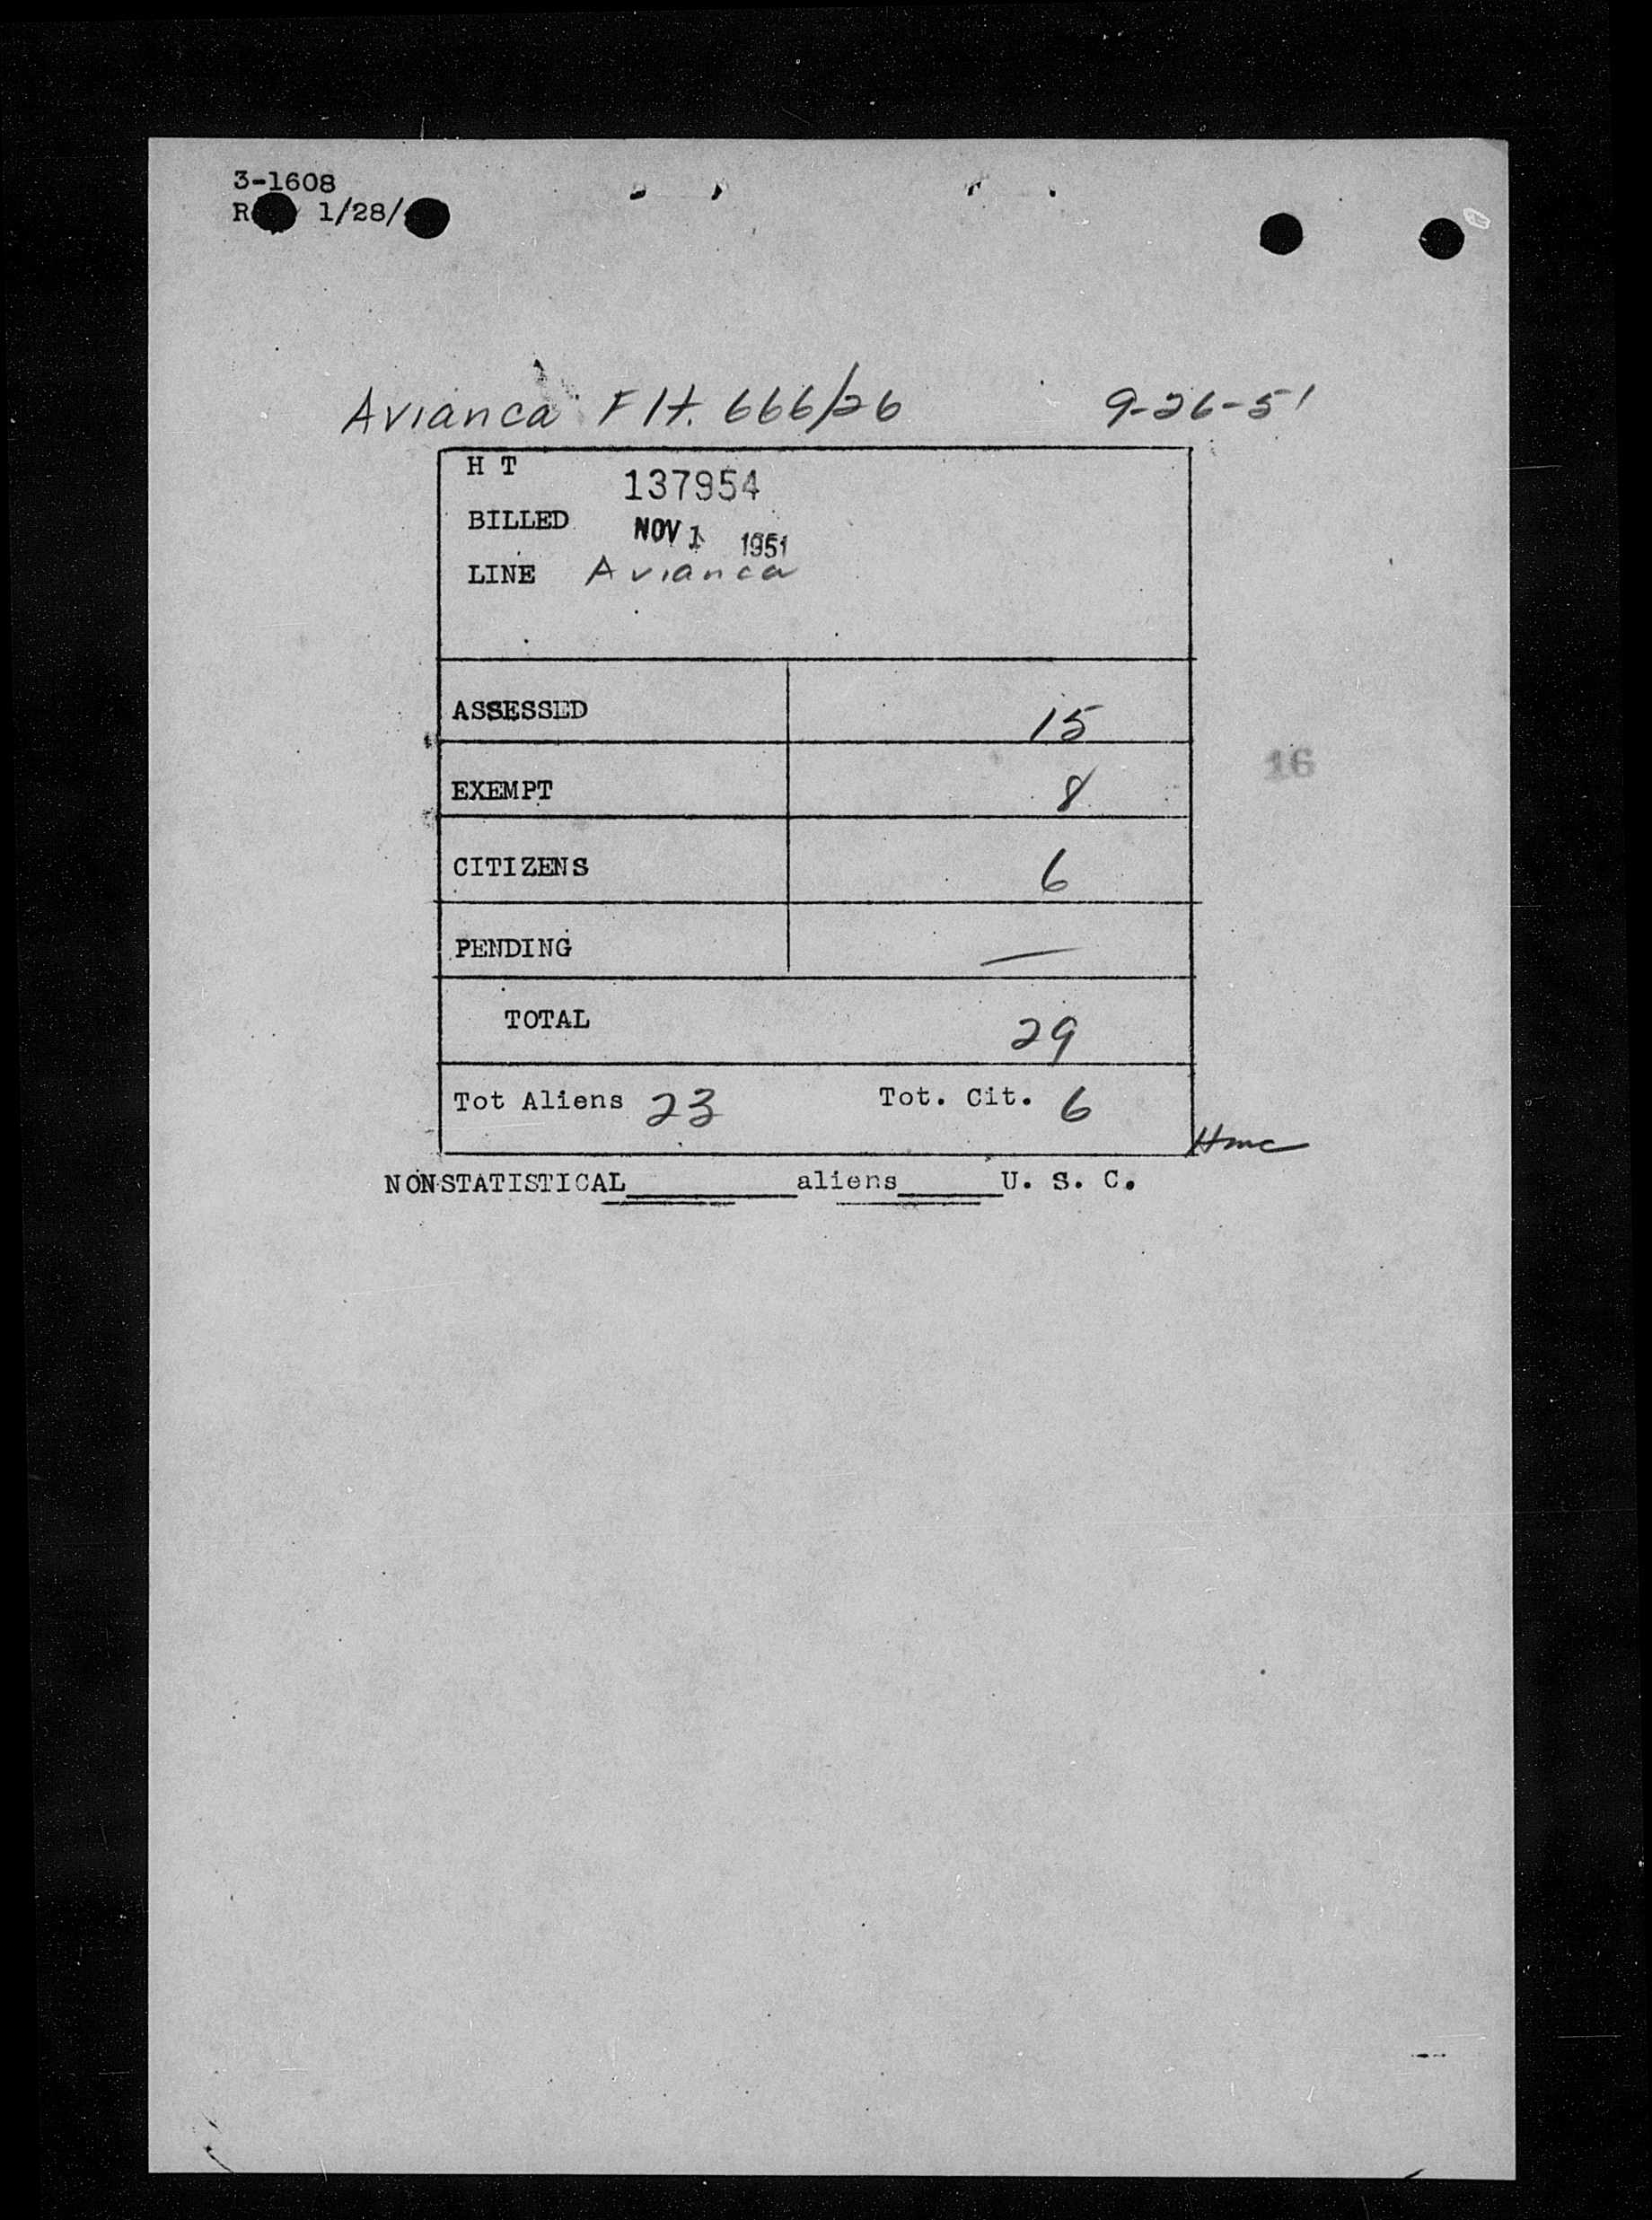 3-1608
1/28/
Avianca Flt. 666/26 9-26-51
H T 137954
BILLED NOV 1 1951
LINE Avianca
ASSESSED 15
16
EXEMPT 8
CITIZENS 6
PENDING —
TOTAL 29
Tot Aliens 23 Tot. Cit. 6
NONSTATISTICAL________aliens_____U. S. C.